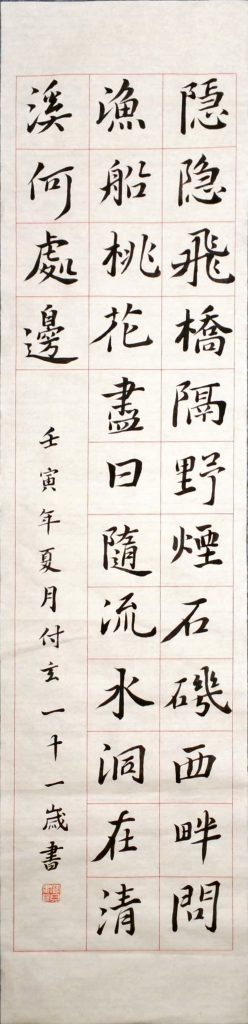 隱隐飛橋隔野煙石磯西畔問
漁船桃花盡日隨流水洞在清
溪何處邊
壬寅年夏月付玄一十一歲書